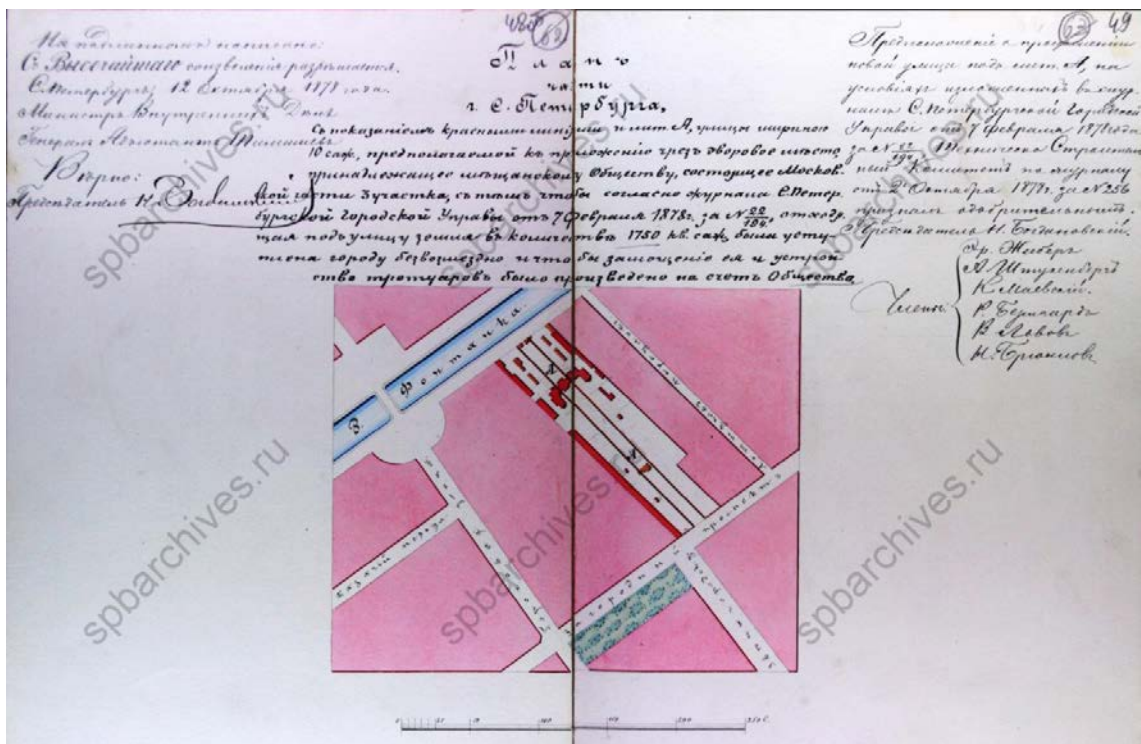 48об 62
63 49
На подлинномъ написано:
Съ Высочайшаго соизволенія разрѣшается.
С.Петербургъ, 12 Октября 1878 года.
Министръ Внутреннихъ Дѣлъ
Генералъ Адъютантъ Тимашевъ
Вѣрно:
Предсѣдатель Н.
Планъ
части
г. С. Петербурга,
Съ показаніемъ красными линіями и лит. А, улицы шириною
10 саж, предполагаемой къ проложенію чрезъ дворовое мѣсто
принадлежащее мѣщанскому Обществу, состоящее Москов-
ской части 3 участка, съ тѣмъ чтобы согласно журнала С.Петер-
бургской Городской Управы отъ 7 Февраля 1878г. за № 22/184, отходя-
щая подъ улицу земля въ количествѣ 1750 кв. саж, была усту-
плена городу безвозмездно и чтобы замощеніе ея и устрой-
ство тротуаровъ было произведено на счетъ Общества.
Предположеніе о проложеніи
новой улицы подъ лит. А, на
условіяхъ изложенныхъ въ жур-
налѣ С.Петербургской Городской
Управы отъ 7 Февраля 1878 года
за № Техническо Строитель-
ный Комитетъ по журналу
отъ 2 Октября 1878г. за № 256
призналъ одобрительнымъ.
Предсѣдатель Н. Богдановскій.
Члены:
Хр. Жиберъ
А. Штукенбергъ
К. Маевскій.
Р. Бернгардъ
В. Львовъ
Н.
Р. Фонтанка.
А
А
казачій переул.
проспектъ
0 50 100 200 250 с.
spbarchives.ru
spbarchives.ru
spbarchives.ru
spbarchives.ru
spbarchives.ru
spbarchives.ru